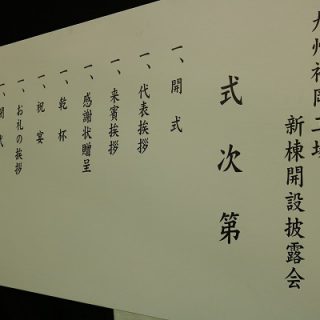 九州福岡工場
新棟開設披露会
式次第
一、開式
一、代表挨拶
一、来賓挨拶
一、感謝状贈呈
一、乾杯
一、祝宴
一、お礼の挨拶
一、閉式